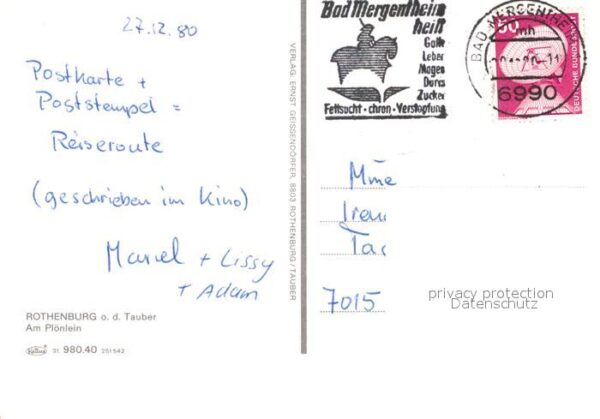 27.12.80
Postkarte +
Poststempel =
Reiseroute
(geschrieben im Kino)
+ Lissy
+ Adam
ROTHENBURG o. d. Tauber
Am Plönlein
980.40 251542
VERLAG: ERNST GEISSENDÖRFER, 8803 ROTHENBURG/TAUBER
Bad Mergentheim
heilt
Galle
Leber
Magen
Darm
Zucker
Fettsucht · chron · Verstopfung
BAD MERGENTHEIM
mh
6990
50
DEUTSCHE BUNDESPOST
Mme
Iren
7015
privacy protection
Datenschutz